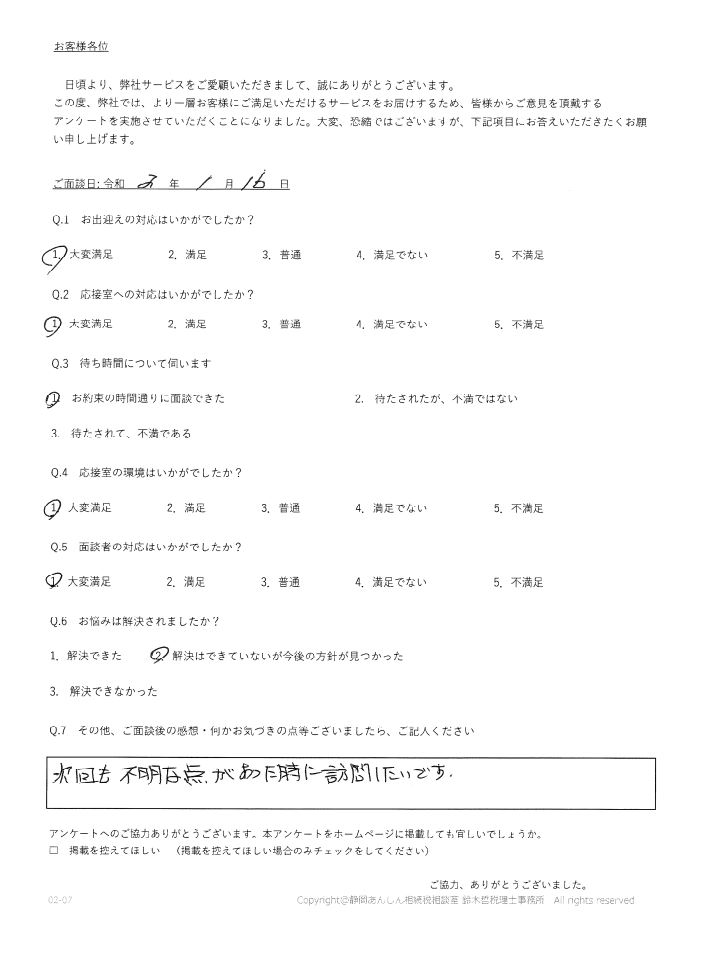 お客様各位
日頃より、弊社サービスをご愛顧いただきまして、誠にありがとうございます。
この度、弊社では、より一層お客様にご満足いただけるサービスをお届けするため、皆様からご意見を頂戴する
アンケートを実施させていただくことになりました。大変、恐縮ではございますが、下記項目にお答えいただきたくお願
い申し上げます。
ご面談日: 令和 2 年 1 月 16 日
Q.1 お出迎えの対応はいかがでしたか？
1. 大変満足 2. 満足 3. 普通 4. 満足でない 5. 不満足
Q.2 応接室への対応はいかがでしたか？
1. 大変満足 2. 満足 3. 普通 4. 満足でない 5. 不満足
Q.3 待ち時間について伺います
1. お約束の時間通りに面談できた 2. 待たされたが、不満ではない
3. 待たされて、不満である
Q.4 応接室の環境はいかがでしたか？
1. 大変満足 2. 満足 3. 普通 4. 満足でない 5. 不満足
Q.5 面談者の対応はいかがでしたか？
1. 大変満足 2. 満足 3. 普通 4. 満足でない 5. 不満足
Q.6 お悩みは解決されましたか？
1. 解決できた 2. 解決はできていないが今後の方針が見つかった
3. 解決できなかった
Q.7 その他、ご面談後の感想・何かお気づきの点等ございましたら、ご記入ください
次回も不明な点があった時に訪問したいです.
アンケートへのご協力ありがとうございます。本アンケートをホームページに掲載しても宜しいでしょうか。
□ 掲載を控えてほしい （掲載を控えてほしい場合のみチェックをしてください）
ご協力、ありがとうございました。
02-07 Copyright@静岡あんしん相続税相談室 鈴木哲税理士事務所 All rights reserved